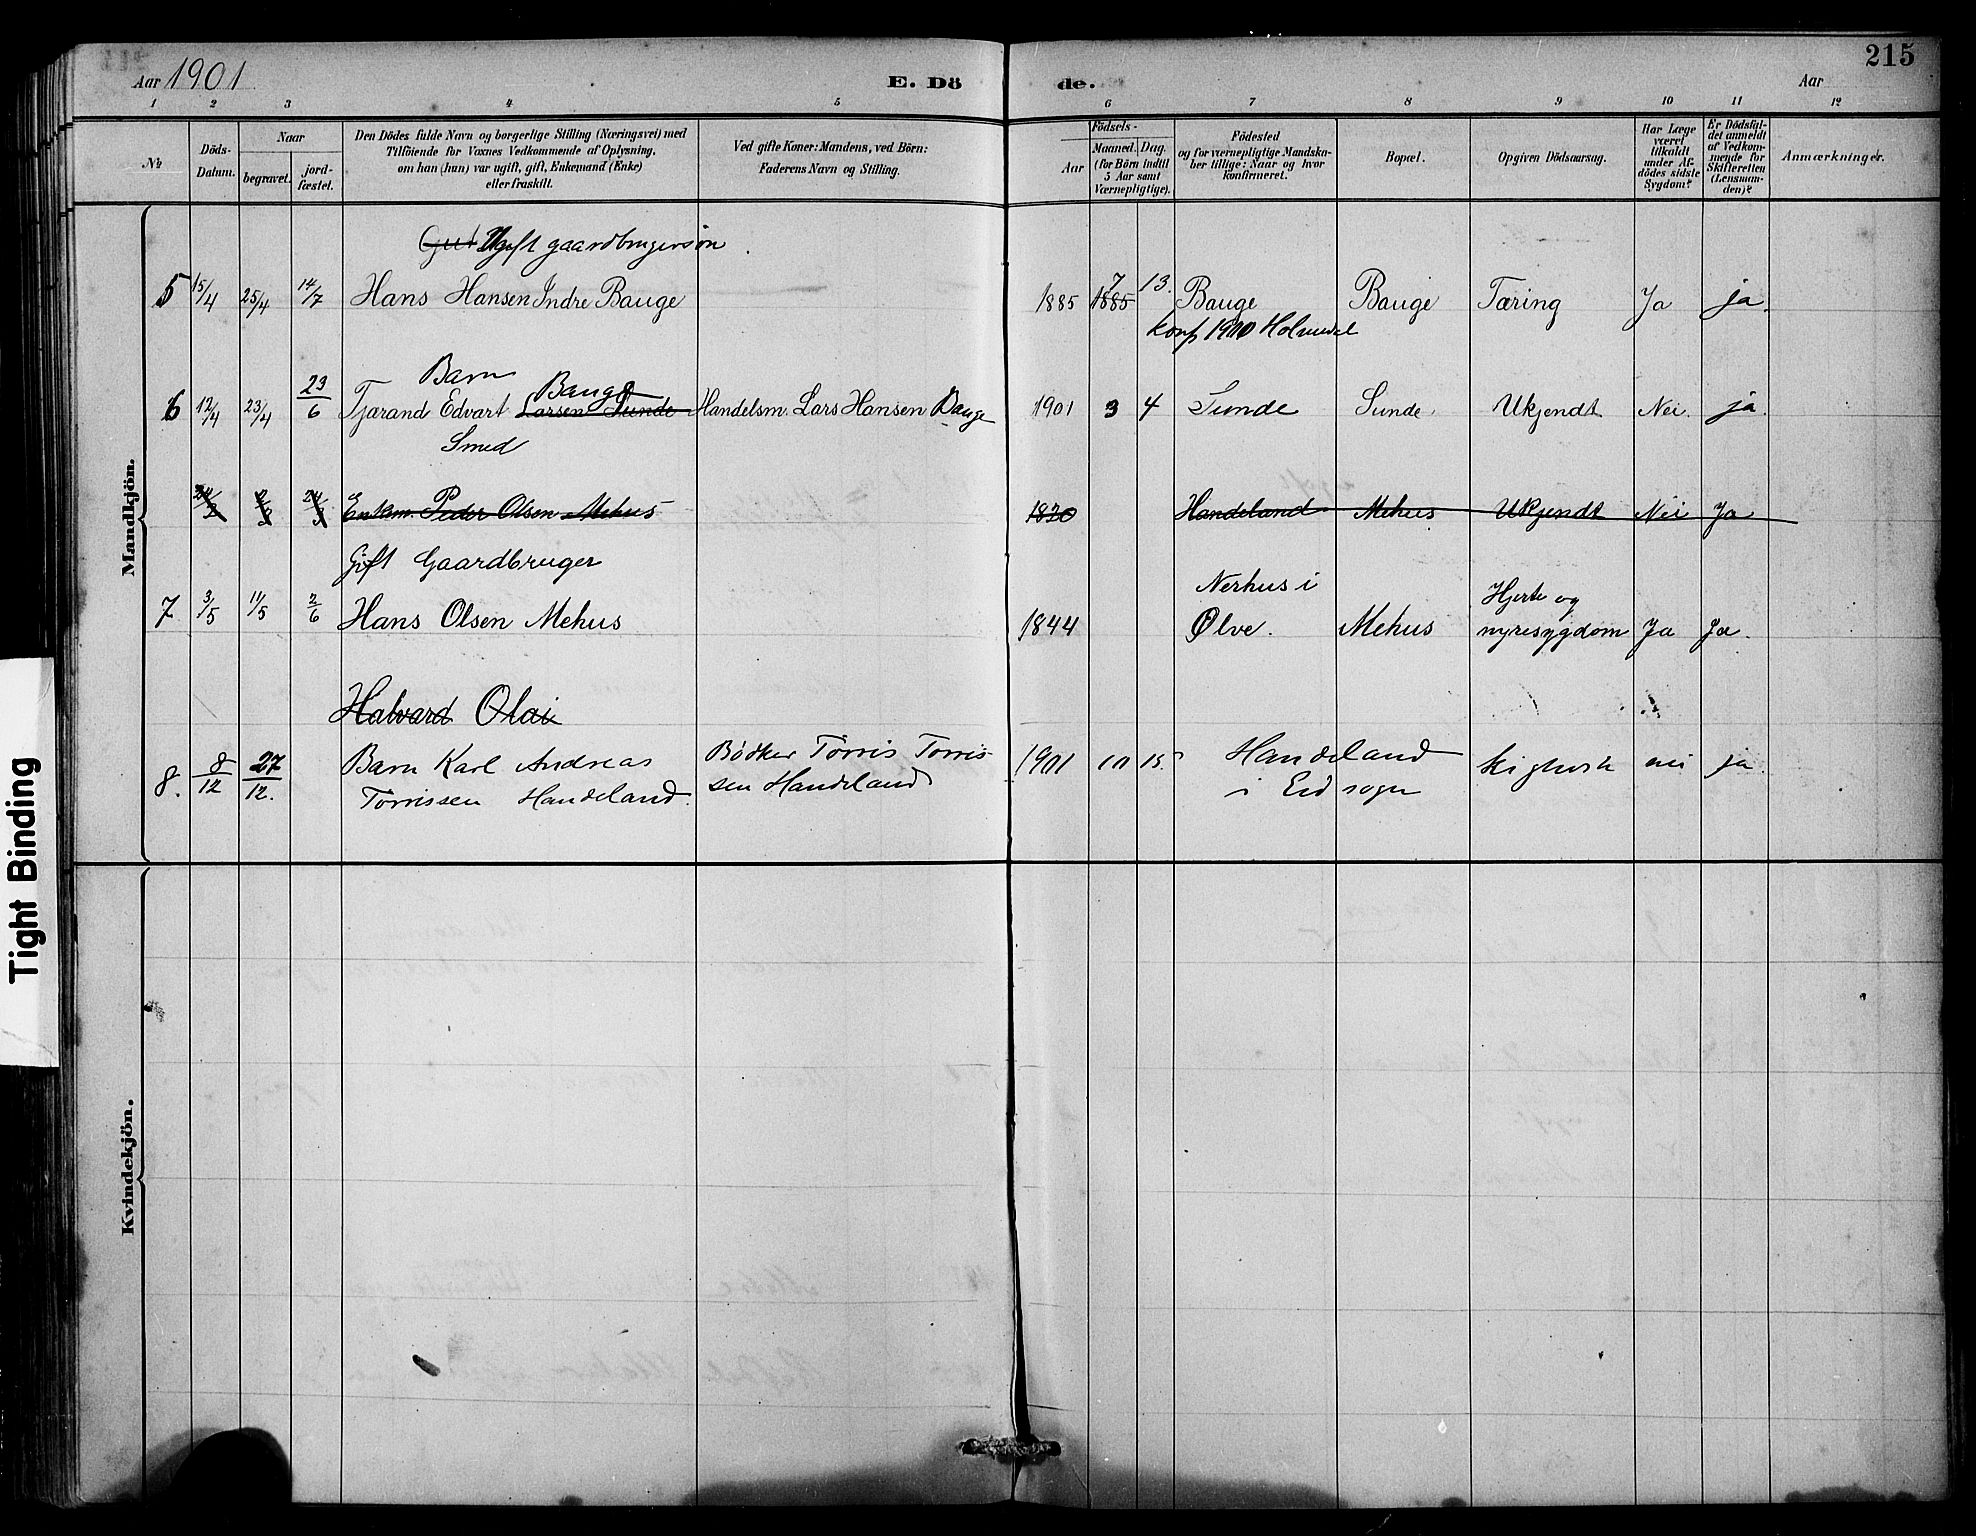 Aar 1901.
E. Dö
de.
Aar
215
1 2 3 4 5 6 7 8 9 10 11 12
№
Döds-
Datum.
Naar
begravet.
jord-
fæstet.
Den Dödes fulde Navn og borgerlige Stilling (Næringsvei) med
Tilföiende for Voxnes Vedkommende af Oplysning,
om han (hun) var ugift, gift, Enkemand (Enke)
eller fraskilt.
Ved gifte Koner: Mandens, ved Börn:
Faderens Navn og Stilling.
Födsels-
Aar
Maaned. Dag.
(for Börn indtil
5 Aar samt
Værnepligtige).
Födested
og for værnepligtige Mandska-
ber tillige: Naar og hvor
konfirmeret.
Bopæl.
Opgiven Dödsaarsag.
Har Læge
været
tilkaldt
under Af-
dödes sidste
Sygdom?
Er Dödsfal-
det anmeldt
af Vedkom-
mende for
Skifteretten
(Lensman-
den)?
Anmærkninger.
Mandkjön.
Ugift gaardbrugersøn
5 15/4 25/4 14/7 Hans Hansen Indre Bauge 1885 1885 7 13. Bauge Bauge Tæring Ja ja.
konf 1900 Holmedal
Barn
Bauge
6 12/4 23/4 23/6 Tjarand Edvart Larsen Sunde Handelsm. Lars Hansen Bauge 1901 3 4 Sunde Sunde Ukjendt Nei. ja.
Smed
Enkem. Peder Olsen Mehus 1820 Handeland Mehus Ukjendt Nei Ja
Gift Gaardbruger
7 3/5 11/5 2/6 Hans Olsen Mehus 1844 Nerhus i
Ølve. Mehus Hjerte og
nyresygdom Ja Ja.
Halvard Olai
8. 8/12 27/12. Barn Karl Andreas
Torrissen Handeland.
Bødker Torris Torris-
sen Handeland
1901 10 15 Handeland
i Eid sogn
kighoste nei ja.
Kvindekjön.
Tight Binding